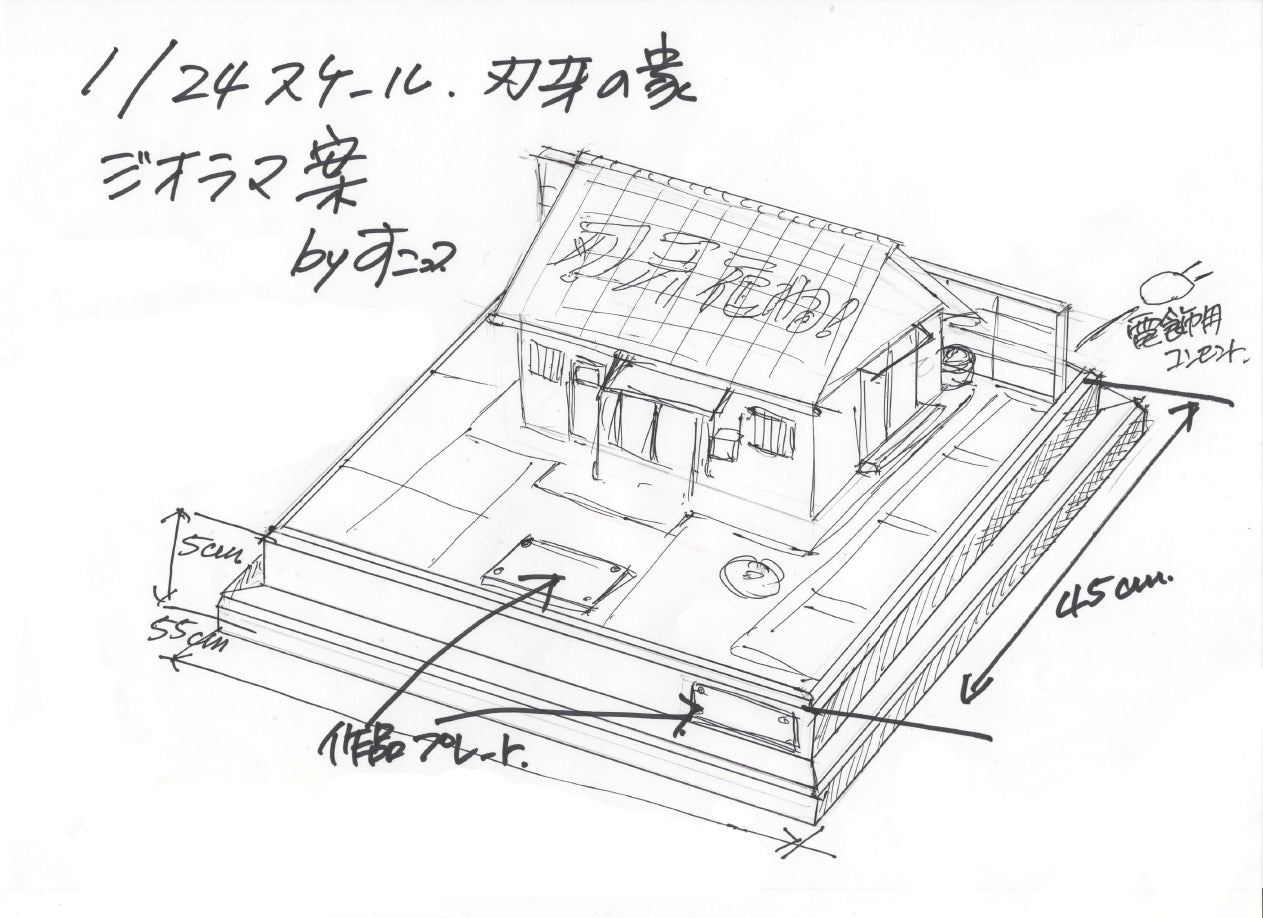 1/24スケール.刃牙の家
ジオラマ案
byすニッス
バカ死ね!
電飾用
コンセント.
5cm.
55cm
45cm.
作品プレート.